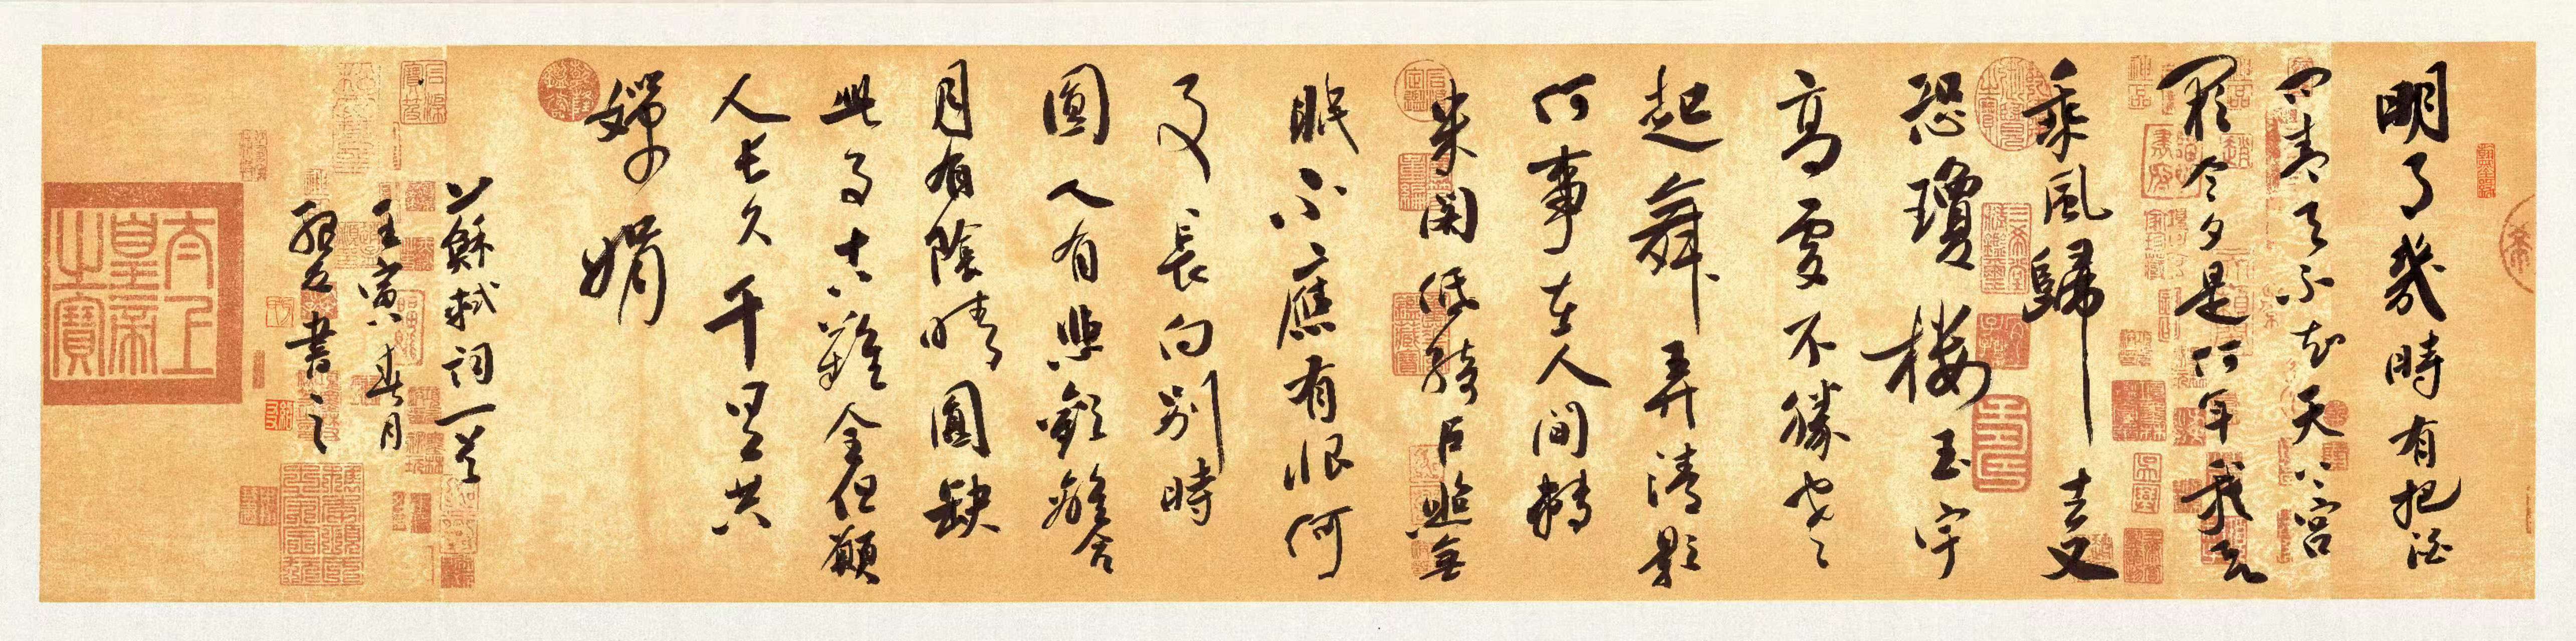 明月幾時有把酒
問青天不知天上宮
闕今夕是何年我欲
乘風歸去又
恐瓊樓玉宇
高處不勝寒
起舞弄清影
何事在人間轉
朱閣低綺戶照無
眠不應有恨何
事長向別時
圓人有悲歡離合
月有陰晴圓缺
此事古難全但願
人長久千里共
嬋娟
蘇軾詞一首
壬寅春月
書之
太上皇帝之寶